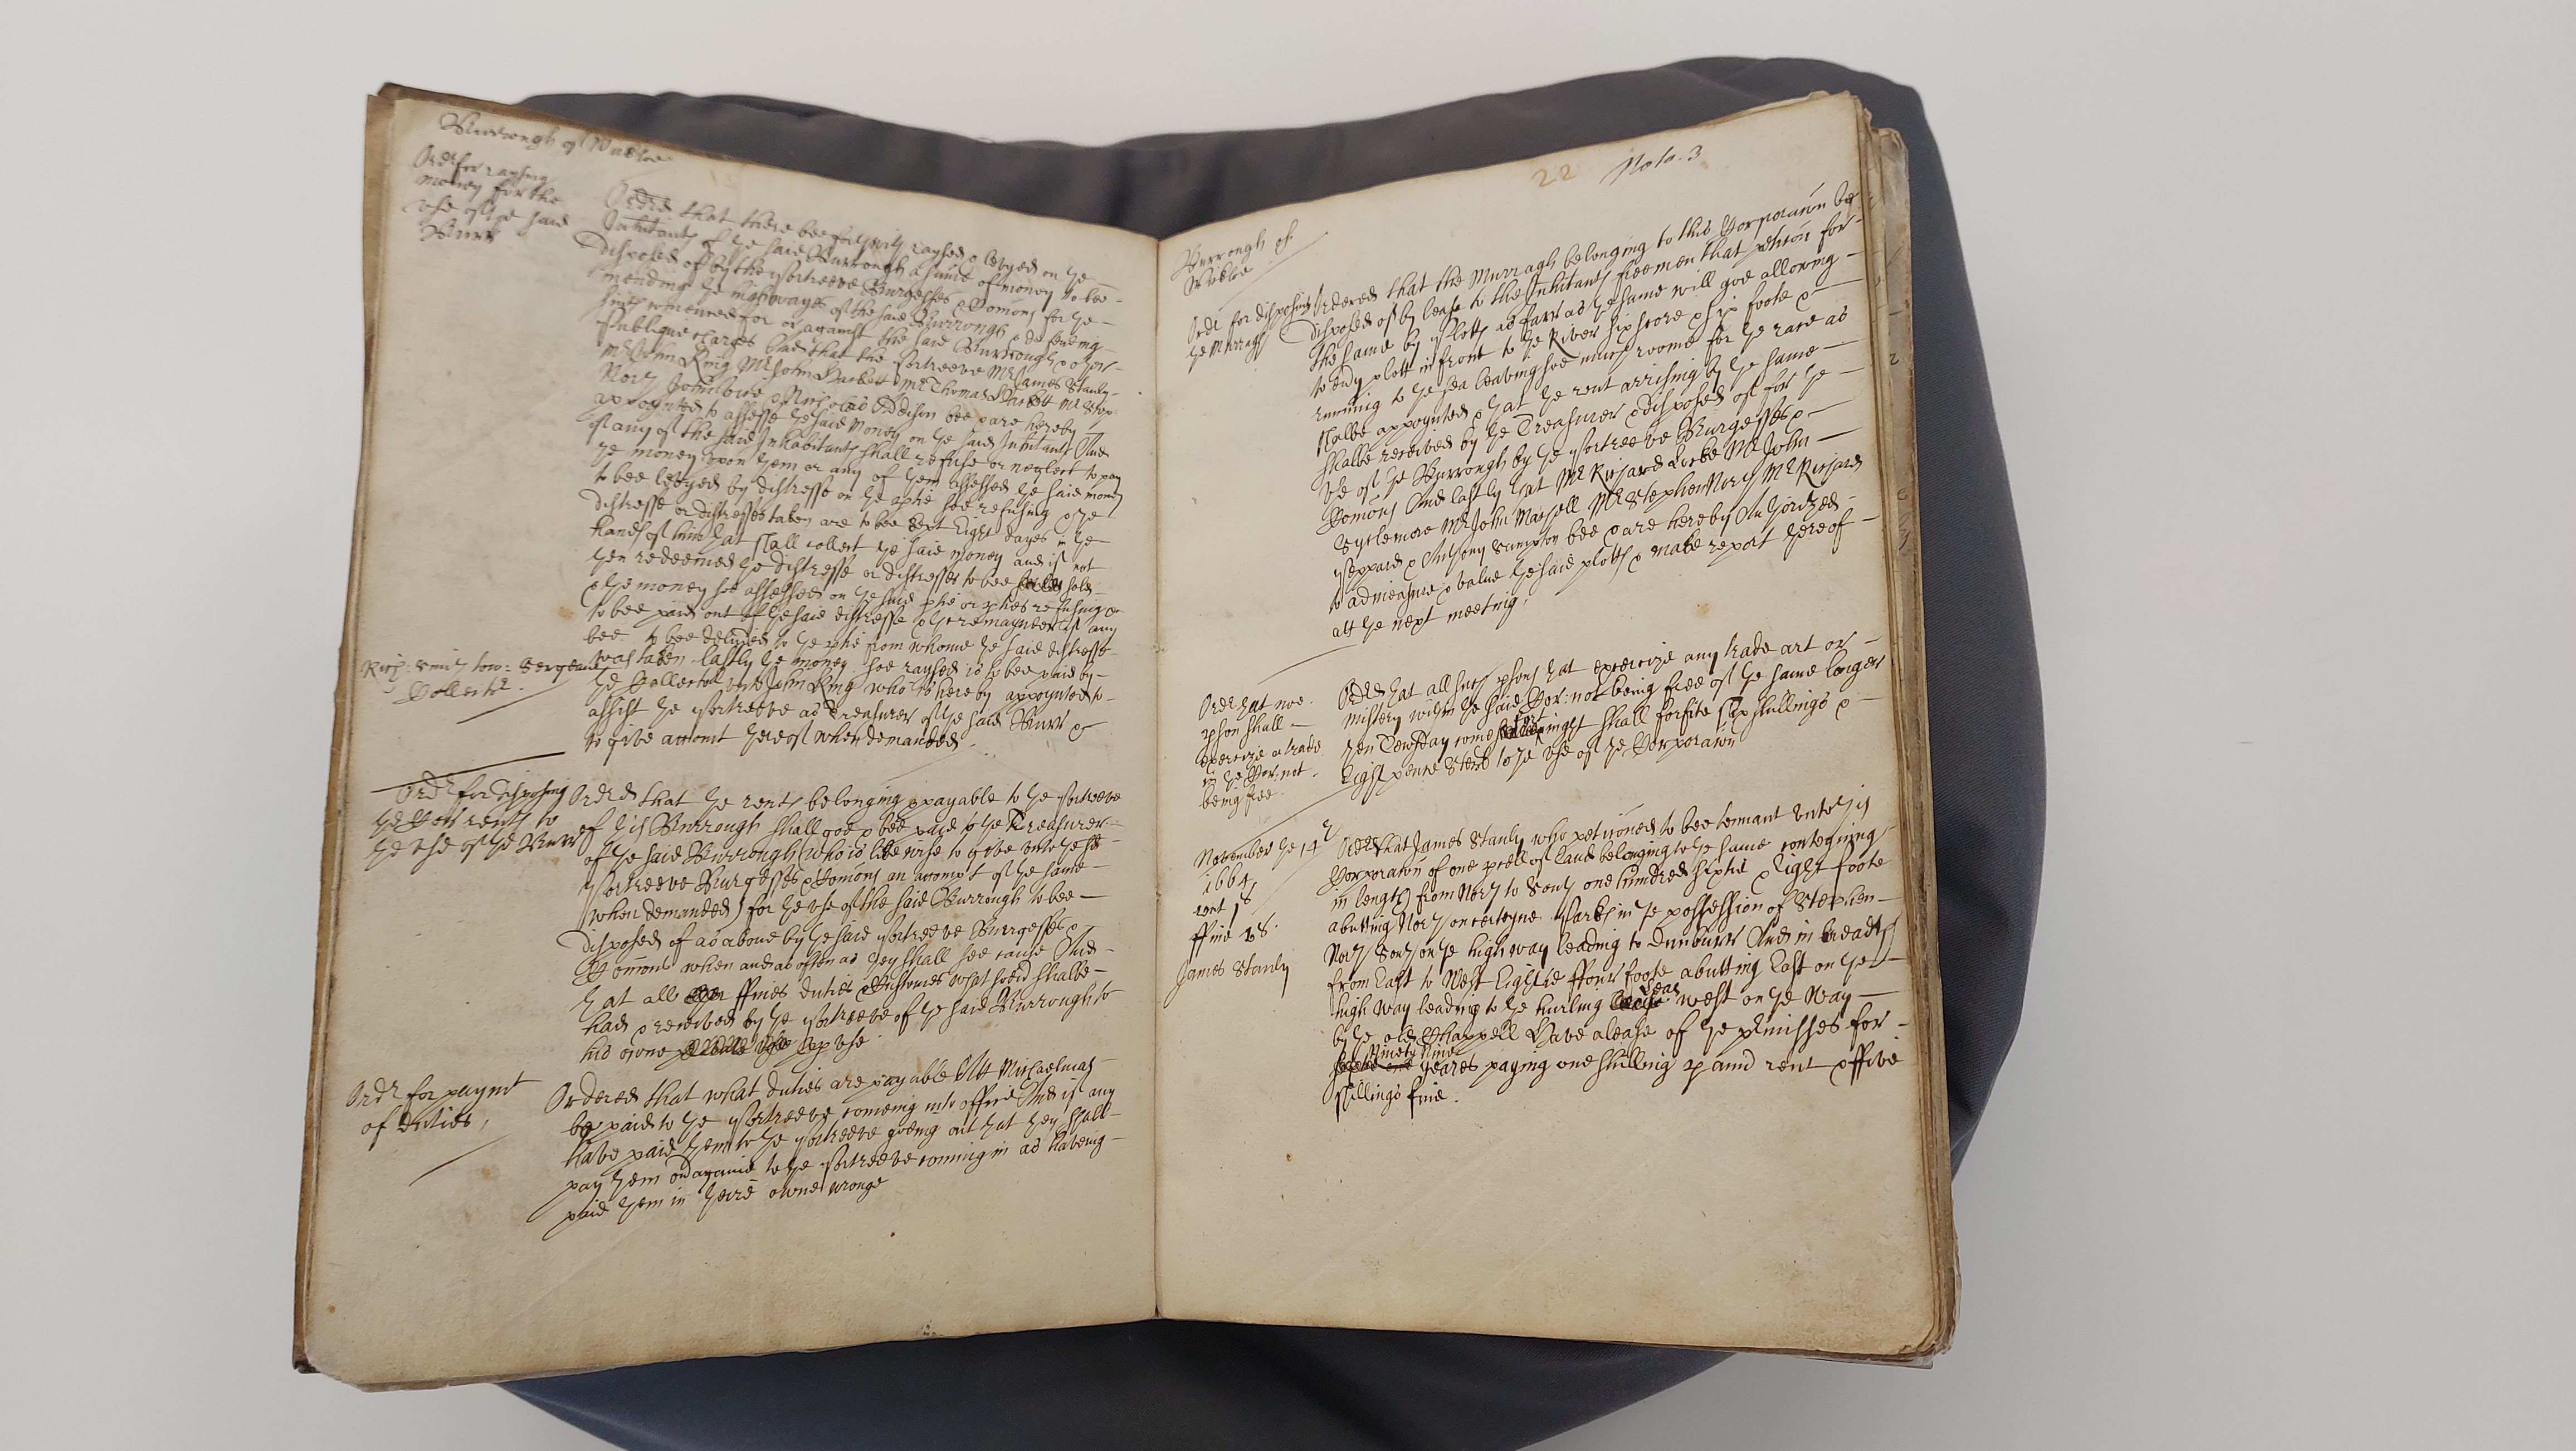 Burrough of Wickloe
Ordr for rayseing
money for the
vse of ye said
Burr
Ordrd that there bee forthwith raysed & levyed on ye
Inhitants of ye said Burrough a sume of money to bee
disposed of by the Portreeve Burgesses & Comons for ye
mending ye highwayes of the said Burrough & defending
suits comenced for or against the said Burrough & other
Publique charges And that the Portreeve Mr James Stanly
Mr John King Mr John Hackett Mr Thomas Hackett Mr Step:
North John Lowe & Nicholas Addison bee & are hereby
appoynted to assesse ye said money on ye said Inhitants And
if any of the said Inhabitants shall refuse or neglect to pay
ye money vpon them or any of them assessed ye said money
to bee levyed by distresse on ye ptie soe refusing & ye
distresse or distresses taken are to bee kept Eight dayes in ye
hands of him that shall collect ye said money and if not
then redeemed ye distresse or distresses to bee sold
& ye money soe assessed on ye said ptie or pties refusing
to bee paid out of ye said distresse & ye remaynder if any
bee to bee deliured to ye ptie from whome ye said distresse
was taken lastly ye money soe raysed is to bee paid by
ye Collector vnto John King who is hereby appoynted to
assist ye Portreeve as Treasurer of ye said Burr &
to give accomt thereof when demanded
Rich: Smith tow: Sergeant
Collector.
Ordr for disposing
ye Cor rents to
ye vse of ye Burr
Ordrd that ye rents belonging & payable to ye Portreeve
of this Burrough shall goe & bee paid to ye Treasurer
of ye said Burrough (who is likewise to give vnto ye sd
Portreeve Burgesses & Comons an accompt of ye same
when demanded) for ye vse of the said Burrough to bee
disposed of as aboue by ye said Portreeve Burgesses &
Comons when and as often as they shall see cause And
that all ffines duties & Customes what soevr shalbe
had & received by ye Portreeve of ye said Burrough to
his owne vse
Ordr for paymt
of duties,
Ordered that what duties are payable Att Michaelmas
be paid to ye Portreeve comeing into office And if any
have paid them to ye Portreeve goeing out that they shall
pay them againe to ye Portreeve coming in as haveing
paid them in theire owne wronge
22 Nota. 3
Burrough of
Wickloe
Ordr for disposing
ye Murragh
Ordered that the Murragh belonging to this Corporacon be
disposed of by lease to the Inhitants freemen that peticon for
the same by Plotts as farr as ye same will goe allowing
to evry plott in front to ye River six score & six foote &
running to ye sea leaving soe much roome for ye rare as
shalbe appoynted & that ye rent arriseing by ye same
shalbe received by ye Treasurer & disposed of for ye
vse of ye Burrough by ye Portreeve Burgesses &
Comons And lastly that Mr Richard Leeke Mr John
Sytlemore Mr John Maxsell Mr Stephen North Mr Richard
Sheppard & Anthony Sumpton bee & are hereby Authorized
to admeasure & value the said plotts & make report thereof
att ye next meeting.
Ordr that noe
pson shall
exercize a trade
in ye Cor: not
being free.
Ordrd that all such psons that exercize any trade art or
mistery within ye said Cor: not being free of ye same longer
then Tewsday come fortnight shall forfite six shillings &
Eight pence sterl to ye vse of ye Corporacon
November ye 14th
1664
rent 1s
ffine 5s.
James Stanly
Ordrd that James Stanly who peticoned to bee tennant vnto this
Corporacon of one pcell of land belonging to ye same conteyning
in length from North to South one hundred sixtie & Eight foote
abutting North on certeyne Parks in ye possession of Stephen
North South on ye high way leading to Dunburr And in breadth
from East to West Eightie ffour foote abutting East on ye
high way leading to ye hurling Leas West on ye way
by ye old Chappell Have a lease of ye pmisses for
Ninety Nine yeares paying one shilling p annu rent & ffive
shillings fine.